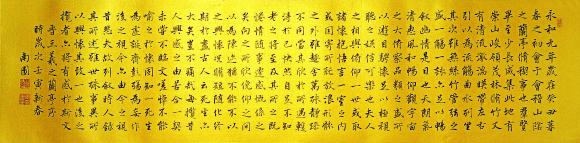 永和九年歲在癸丑暮
春之初會于會稽山陰
之蘭亭脩稧事也羣賢
畢至少長咸集此地有
崇山峻領茂林脩竹又
有清流激湍暎帶左右
引以為流觴曲水列坐
其次雖無絲竹管弦之
盛一觴一詠亦足以暢
叙幽情是日也天朗氣
清惠風和暢仰觀宇宙
之大俯察品類之盛所
以遊目騁懷足以極視
聽之娛信可樂也夫人
之相與俯仰一世或取
諸懷抱悟言一室之內
或因寄所託放浪形骸
之外雖趣舍萬殊靜躁
不同當其欣於所遇暫
得於己快然自足不知
老之將至及其所之既
惓情隨事遷感慨係之
矣向之所欣俛仰之間
以為陳迹猶不能不以
之興懷況脩短隨化終
期於盡古人云死生亦
大矣豈不痛哉每攬昔
人興感之由若合一契
未嘗不臨文嗟悼不能
喻之於懷固知一死生
為虛誕齊彭殤為妄作
後之視今亦由今之視
昔悲夫故列叙時人錄
其所述雖世殊事異所
以興懷其致一也後之
攬者亦將有感於斯文
晉王羲之蘭亭序
時歲次壬寅新春
南國